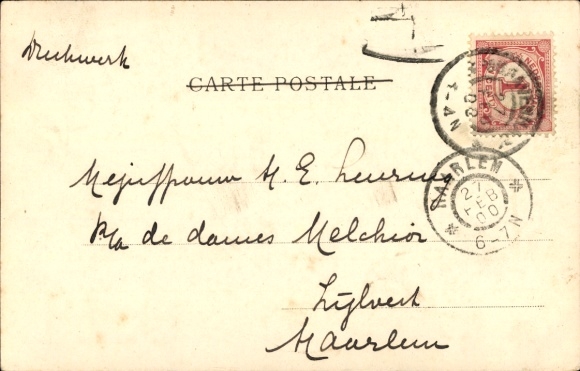 Drukwerk
CARTE POSTALE
Mejuffrouw H. E.
p/a de dames Melchior
Zijlvest
Haarlem
HAARLEM
27 FEB 00
6-7N
1-4N
1